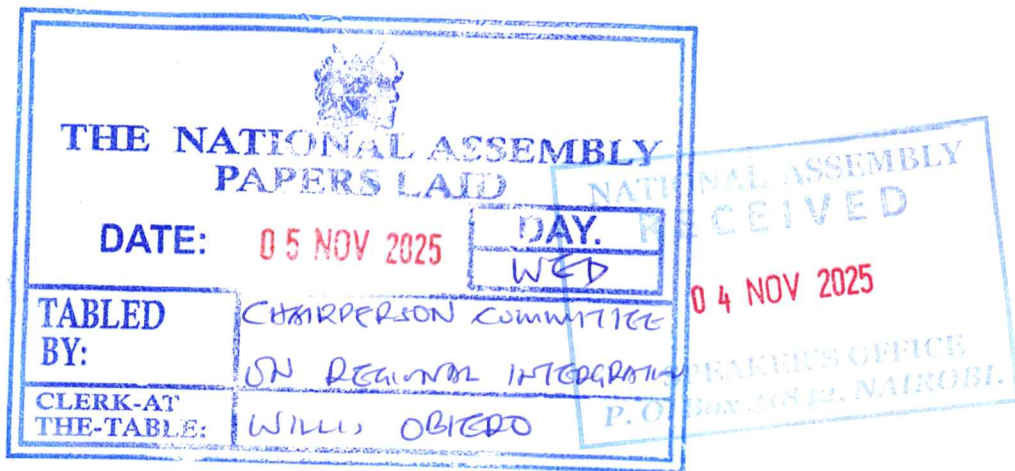 THE NATIONAL ASSEMBLY
PAPERS LAID
DATE: 05 NOV 2025
DAY.
WED
TABLED BY:
CHAIRPERSON COMMITTEE
ON REGIONAL INTEGRATION
CLERK-AT THE-TABLE:
WILLIS OBIERO
NATIONAL ASSEMBLY
RECEIVED
04 NOV 2025
SPEAKER'S OFFICE
P. O. Box 41842, NAIROBI.